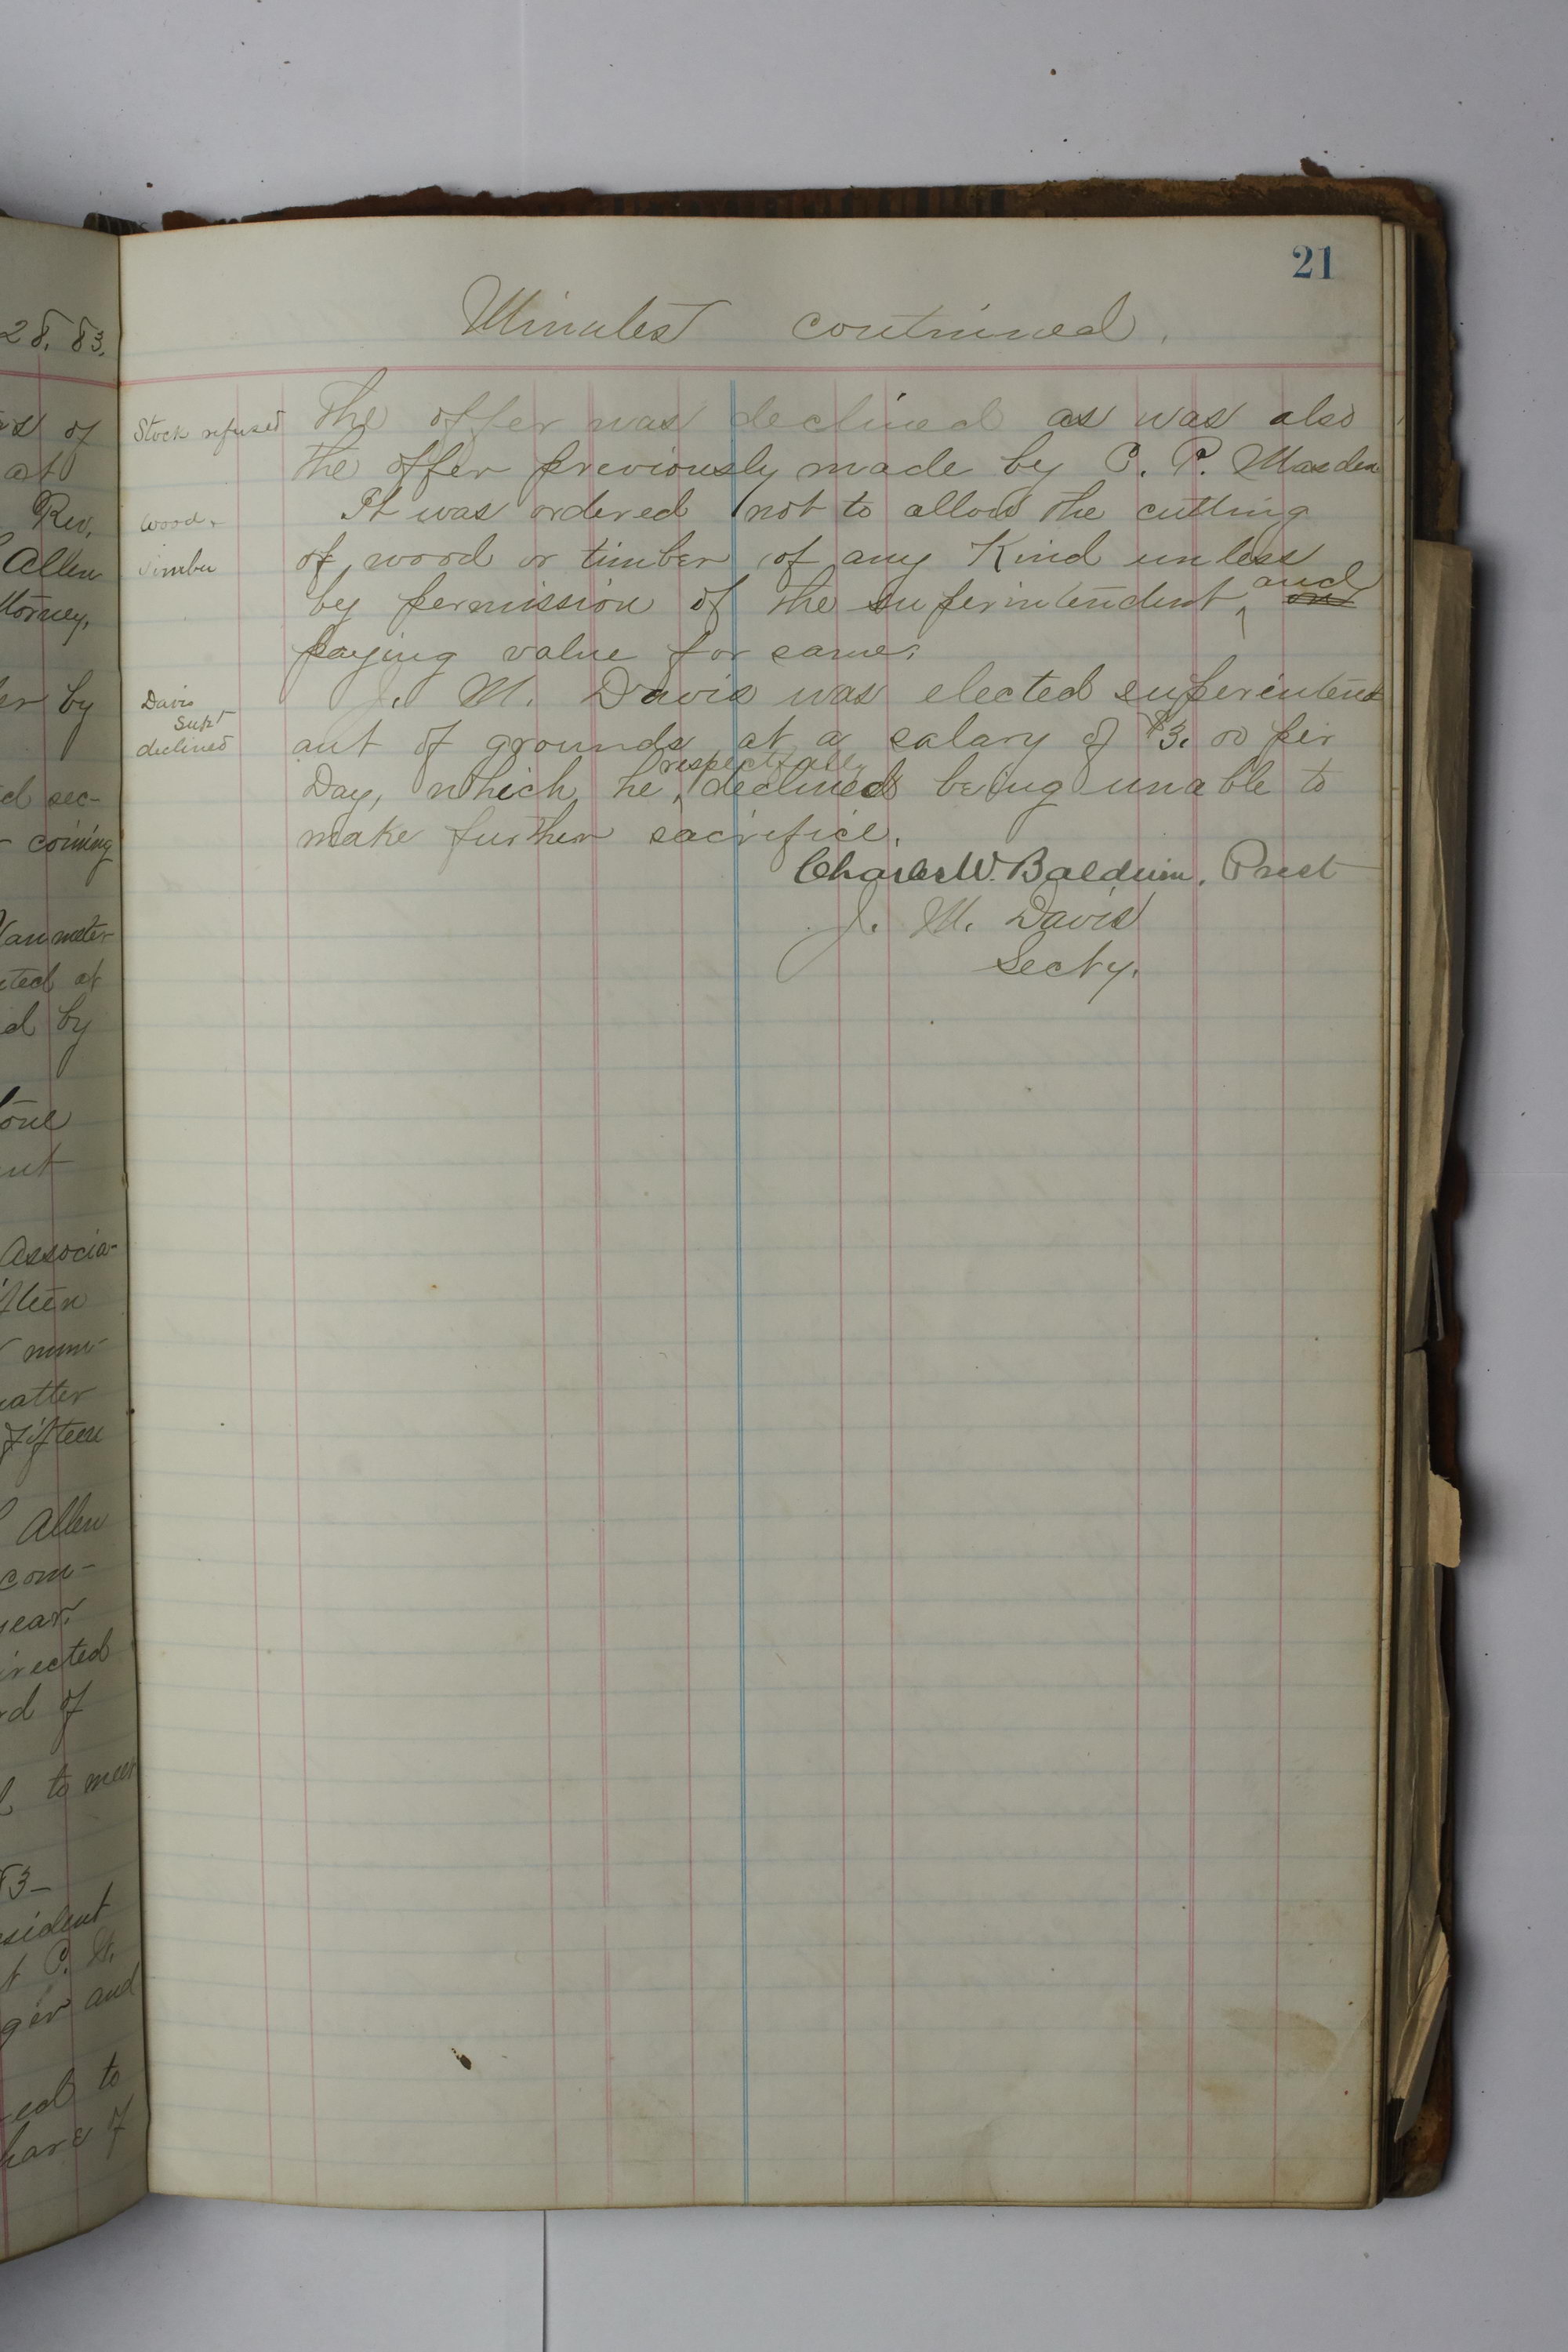 28. 83.
of
at
Rev.
Allen
ttorney,
er by
d sec-
coming
Vanmeter
cted at
d by
one
ent
Associa-
fteen
num-
atter
Fifteen
Allen
com-
year.
irected
rd of
to meet
83-
esident
t C. W.
ger and
ed to
hare of
21
Minutes continued.
Stock refused The offer was declined as was also
the offer previously made by C. P. Masden
Wood, It was ordered not to allow the cutting
Timber of wood or timber of any Kind unless
by permission of the superintendent, and
paying value for same.
Davis J. M. Davis was elected superintend
Supt
declined ant of grounds at a salary of $3.00 per
respectfully
Day, which he, declined being unable to
make further sacrifice.
Charles W. Baldwin, Prest
J. M. Davis
Secty.